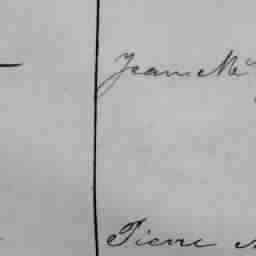 Jean Mc
Pierre